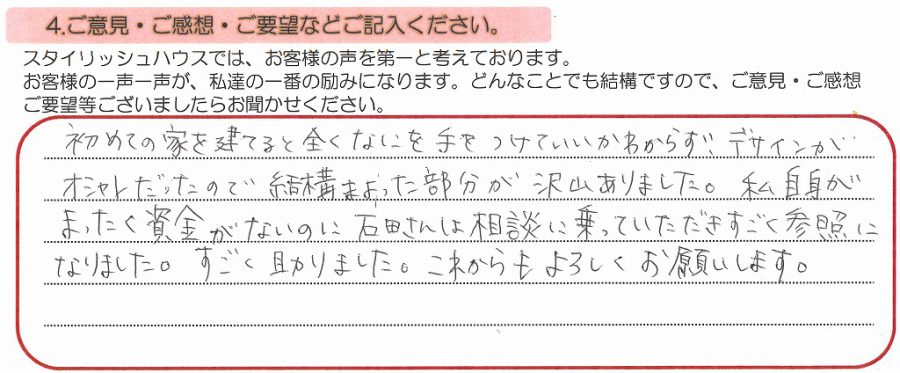 4.ご意見・ご感想・ご要望などご記入ください。
スタイリッシュハウスでは、お客様の声を第一と考えております。
お客様の一声一声が、私達の一番の励みになります。どんなことでも結構ですので、ご意見・ご感想
ご要望等ございましたらお聞かせください。
初めての家を建てると全くなにを手をつけていいかわからず、デザインが
オシャレだったので結構まよった部分が沢山ありました。私自身が
まったく資金がないのに石田さんは相談に乗っていただきすごく参照に
なりました。すごく助かりました。これからもよろしくお願いします。